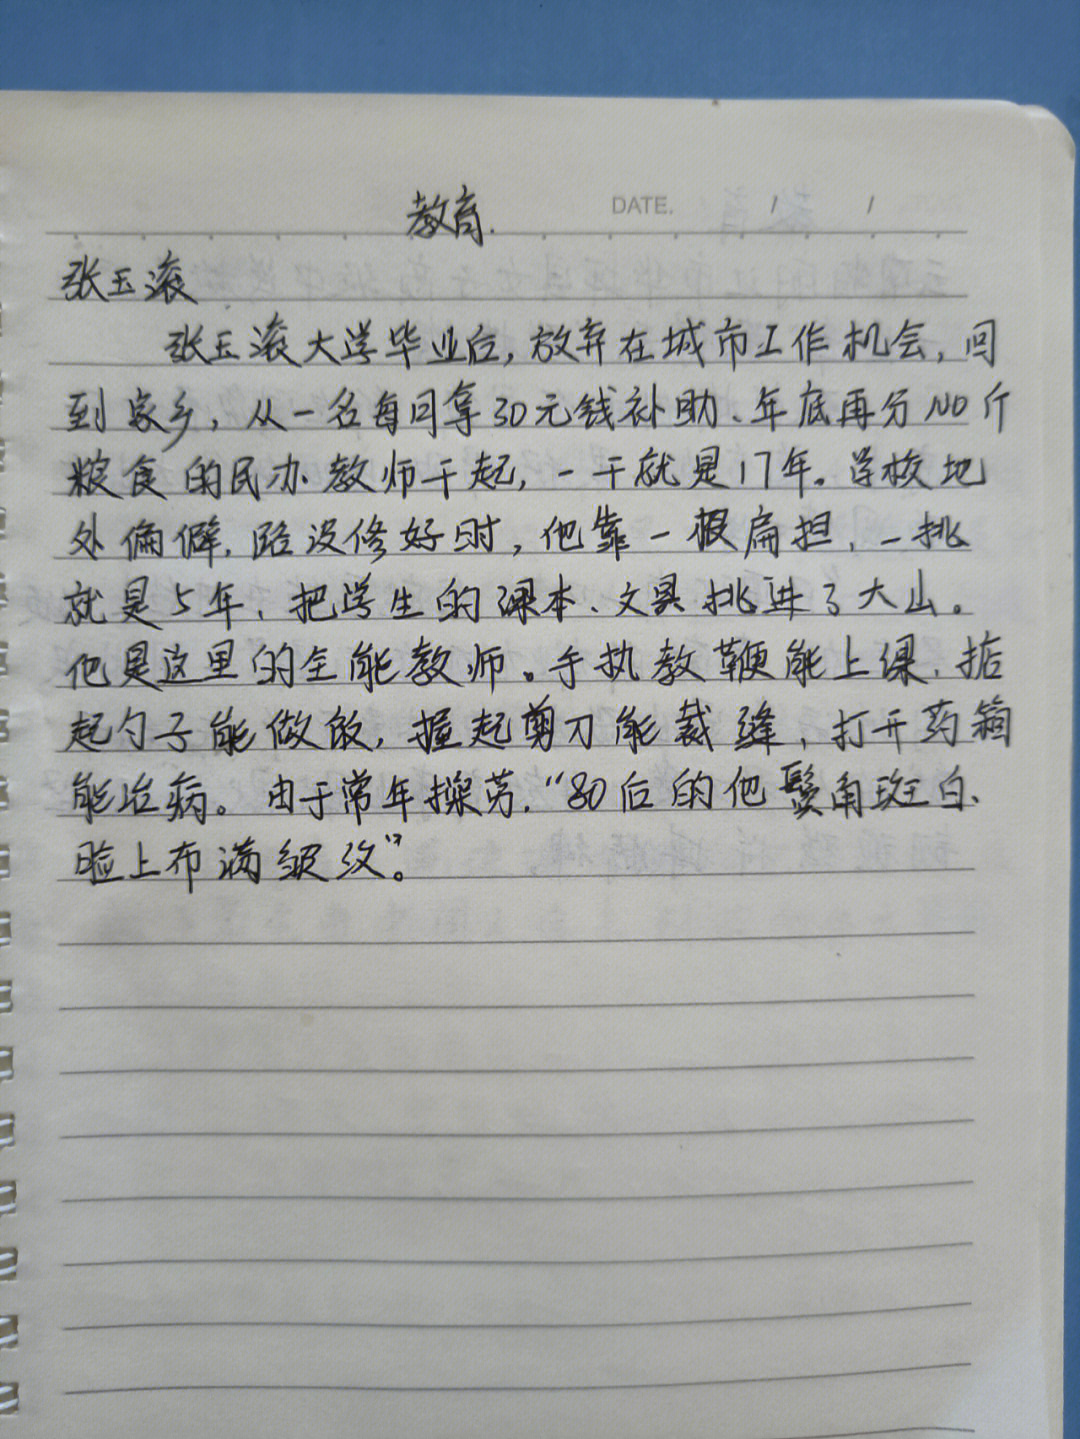 教育.
DATE. / /
张玉滚
张玉滚大学毕业后,放弃在城市工作机会,回
到家乡,从一名每月拿30元钱补助、年底再分100斤
粮食的民办教师干起,一干就是17年。学校地
处偏僻,路没修好时,他靠一根扁担,一挑
就是5年,把学生的课本、文具挑进了大山。
他是这里的全能教师。手执教鞭能上课,掂
起勺子能做饭,握起剪刀能裁缝,打开药箱
能治病。由于常年操劳,“80后的他鬓角斑白、
脸上布满皱纹”。